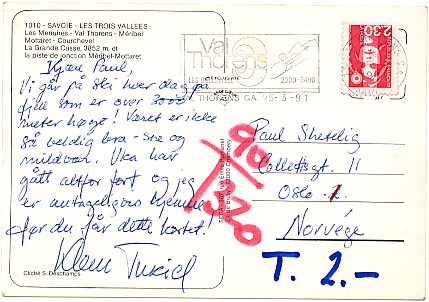 1010 - SAVOIE - LES TROIS VALLEES
Les Menuires - Val Thorens - Méribel
Mottaret - Courchevel
La Grande Casse, 3852 m. et
la piste de jonction Méribel-Mottaret
Kjære Paul,
Vi går på ski hver dag på
fjell som er over 3000
meter høye! Været er ikke
så veldig bra - snø og
mildvær. Uka har
gått altfor fort og jeg
er antageligvis hjemme
før du får dette kortet!
Klem
Cliché S. Deschamps
Val
Thorens
2300-3400
THORENS GA. 25-3-91
2,30
Paul
11
Oslo 1
Norvége
T. 2.-